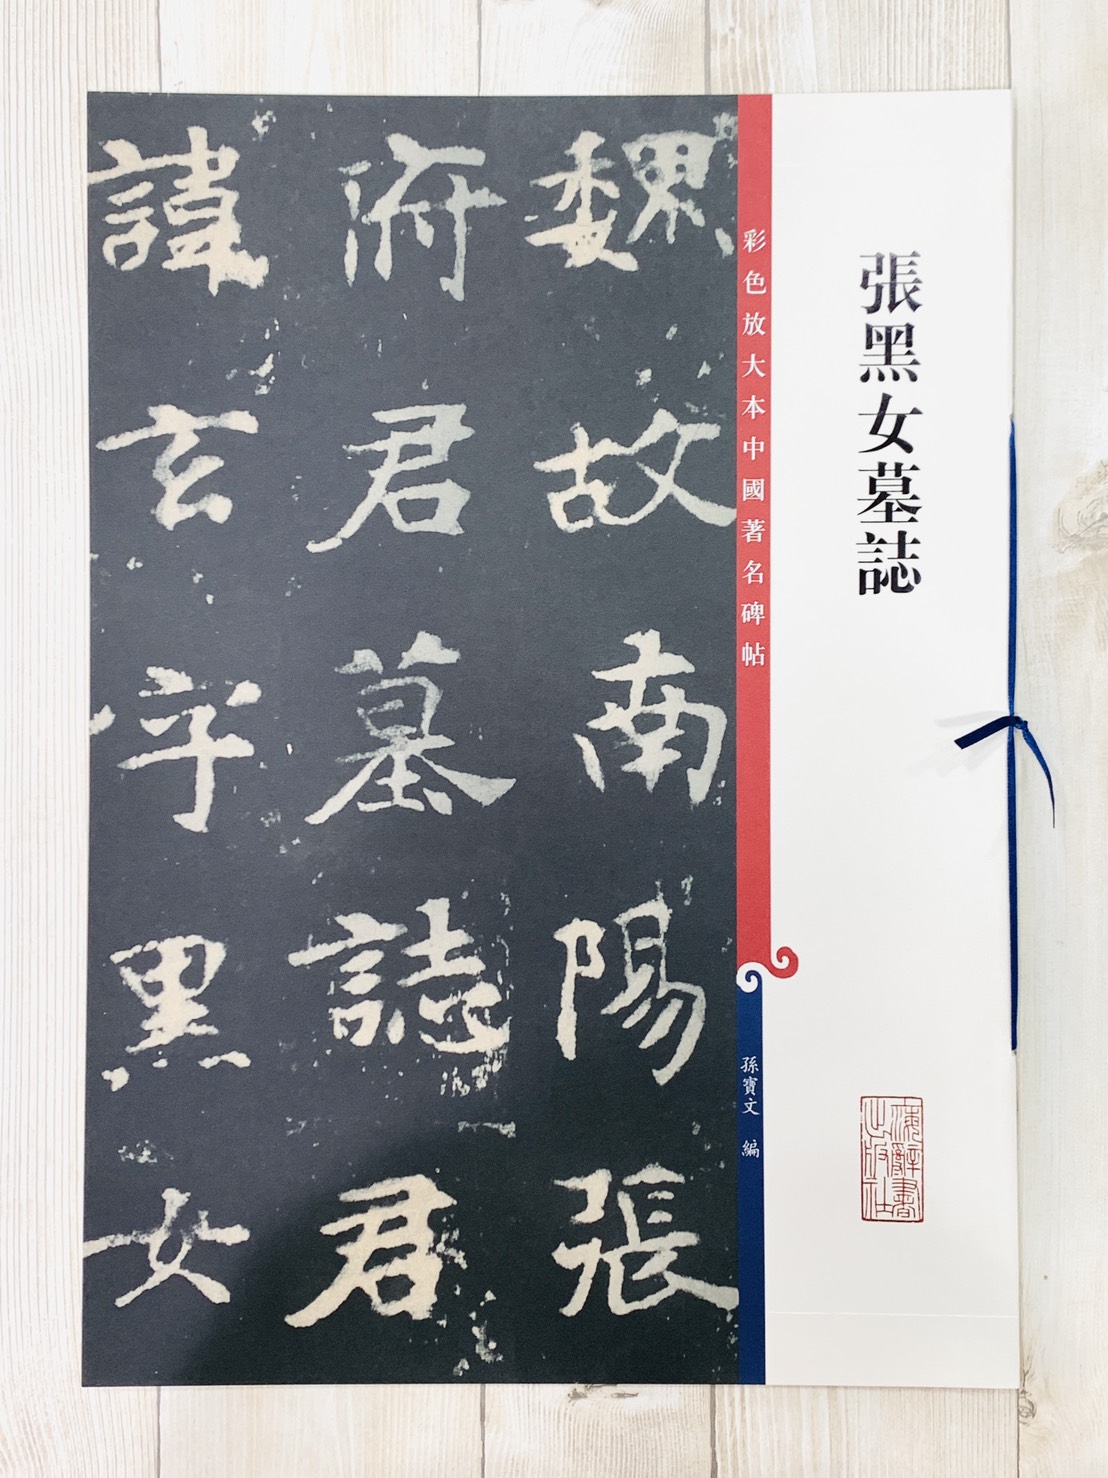 張黑女墓誌
彩色放大本中國著名碑帖
孫寶文 編
海辭書
出版社
魏故南陽張
府君墓誌君
諱玄字黑女